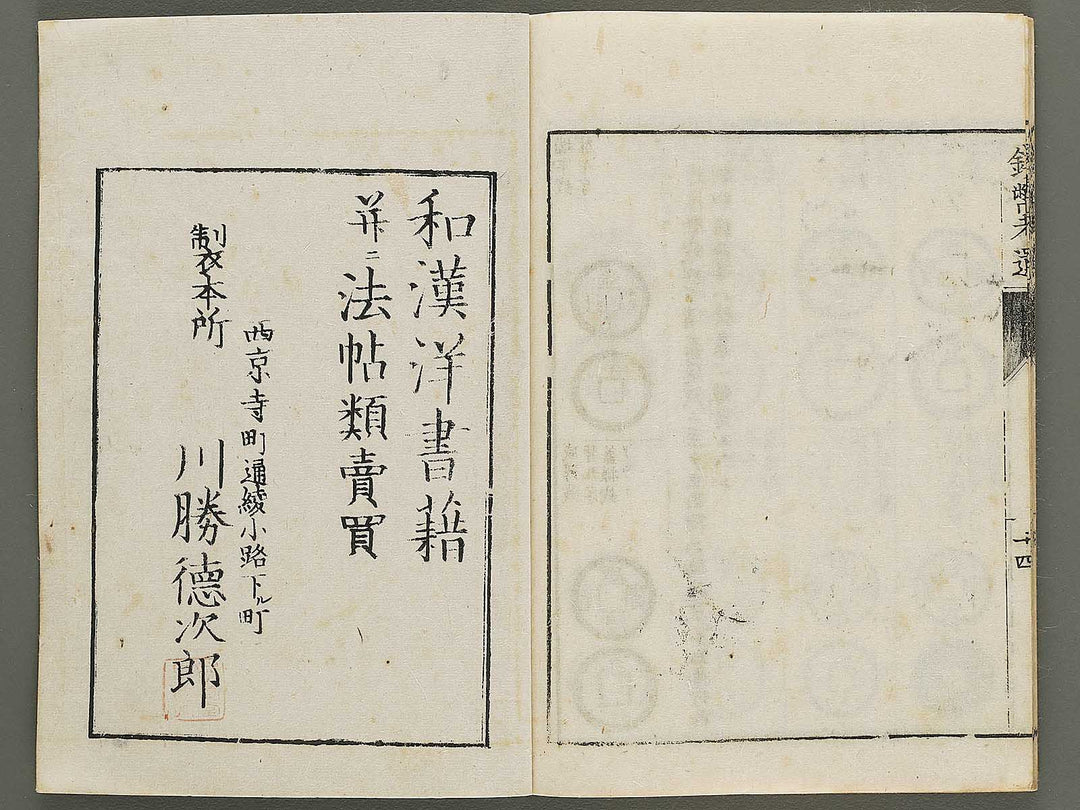 錢幣考遺
十四
和漢洋書籍
并ニ法帖類賣買
西京寺町通綾小路下ル町
製本所 川勝德次郎